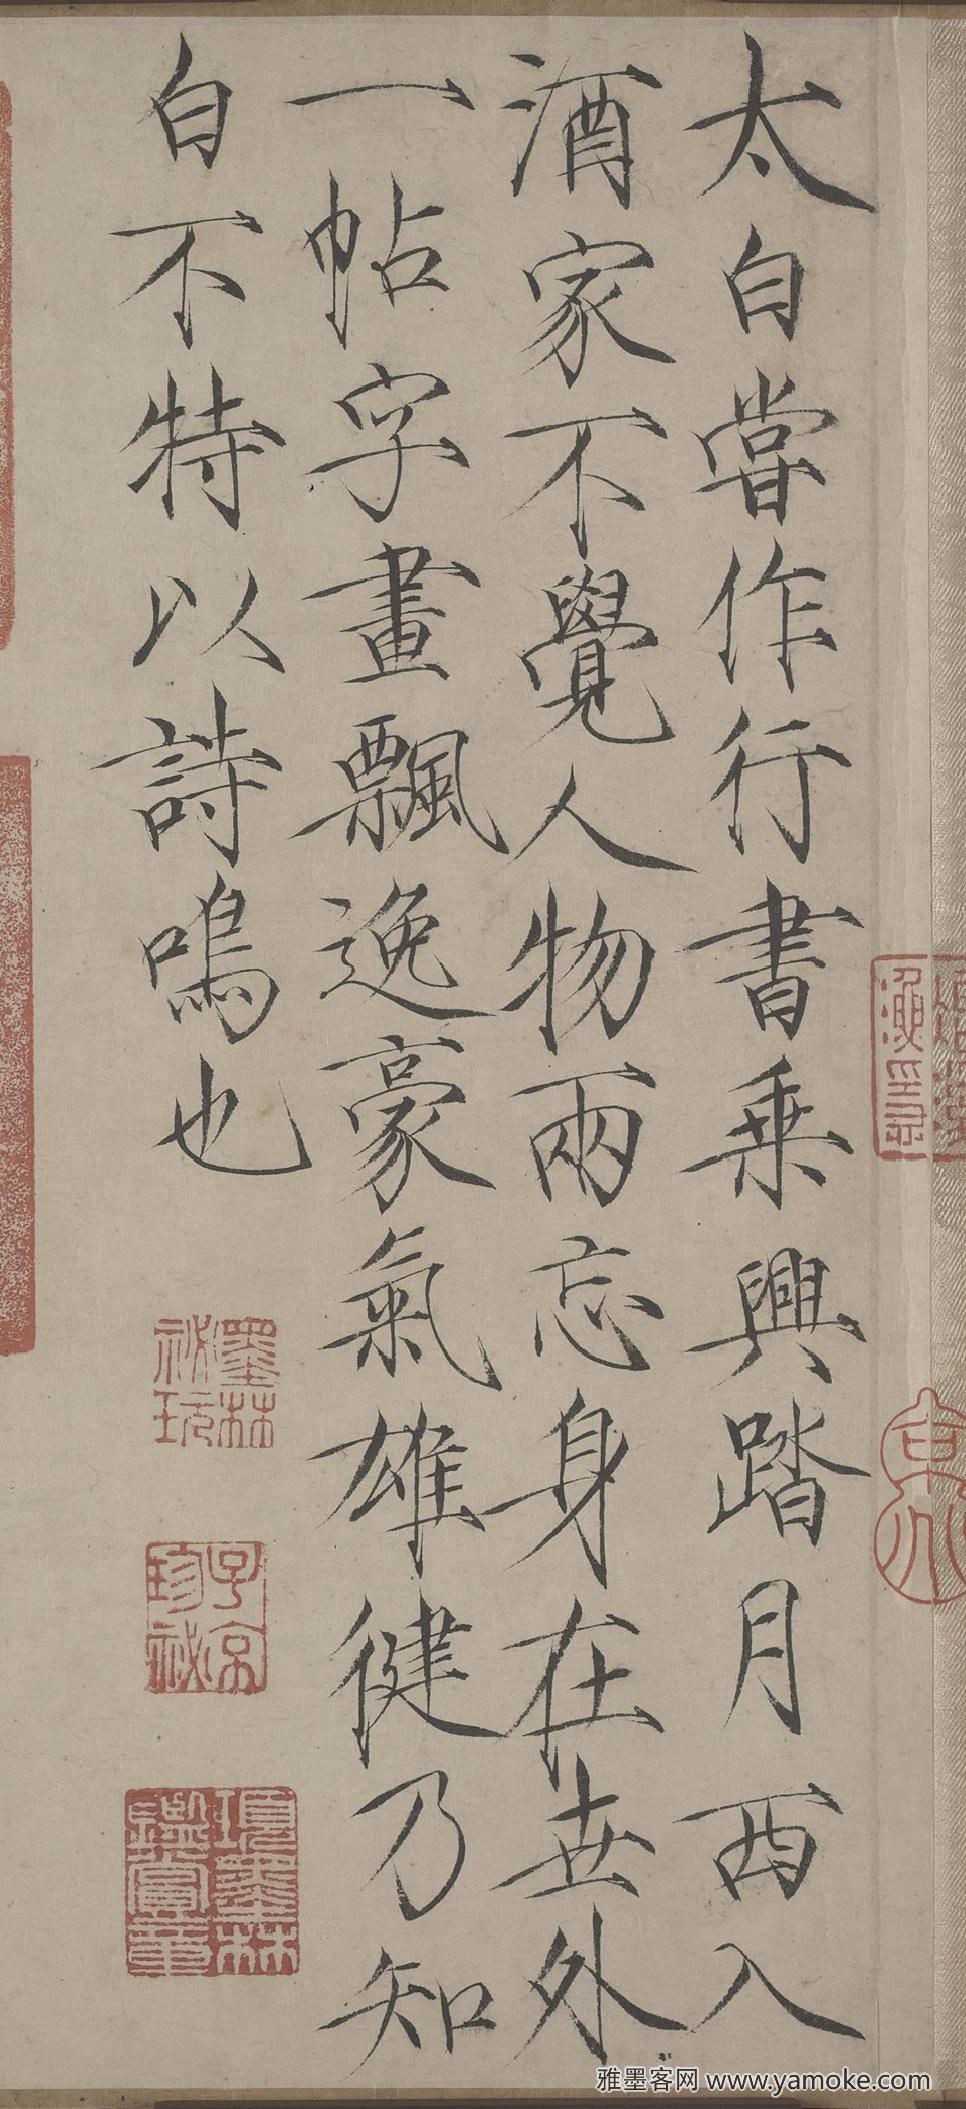 太白嘗作行書乗興踏月西入
酒家不覺人物兩忘身在世外
一帖字畫飄逸豪氣雄健乃知
白不特以詩鳴也
墨林
祕玩
子京
珍祕
項墨林
鑑賞章
雅墨客网 www.yamoke.com